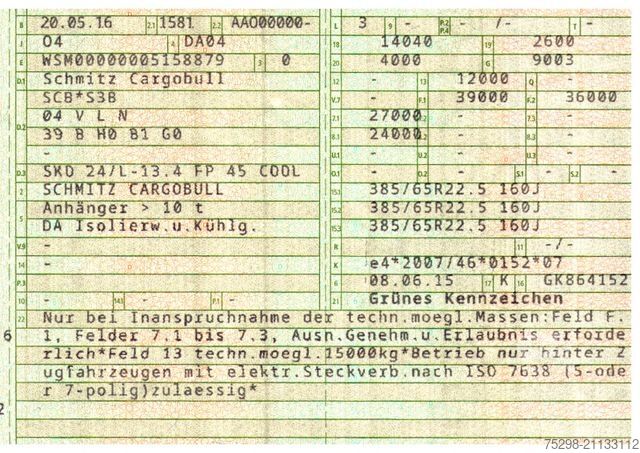 B 20.05.16 2.1 1581 2.2 AAO00000- L 3 9 - P.2 P.4 - /- T -
J 04 4 DA04 18 14040 19 2600
E WSM00000005158879 3 0 20 4000 G 9003
D.1 Schmitz Cargobull 12 - 13 12000 Q -
SCB*S3B V.7 - F.1 39000 F.2 36000
D.2 04 V L N 7.1 27000 7.2 - 7.3 -
39 B H0 B1 G0 8.1 24000 8.2 - 8.3 -
- U.1 - U.2 - U.3 -
D.3 SKO 24/L-13.4 FP 45 COOL O.1 - O.2 - S.1 - S.2 -
2 SCHMITZ CARGOBULL 15.1 385/65R22.5 160J
5 Anhänger > 10 t 15.2 385/65R22.5 160J
DA Isolierw.u.Kühlg. 15.3 385/65R22.5 160J
V.9 - R - 11 -/-
14 - K e4*2007/46*0152*07
P.3 - 6 08.06.15 17 K 16 GK864152
10 - 14.1 - P.1 - 21 Grünes Kennzeichen
22 Nur bei Inanspruchnahme der techn.moegl.Massen:Feld F.
6 1, Felder 7.1 bis 7.3, Ausn.Genehm.u.Erlaubnis erforde
rlich*Feld 13 techn.moegl.15000kg*Betrieb nur hinter Z
ugfahrzeugen mit elektr.Steckverb.nach ISO 7638 (5-ode
r 7-polig)zulaessig*
2
75298-21133112